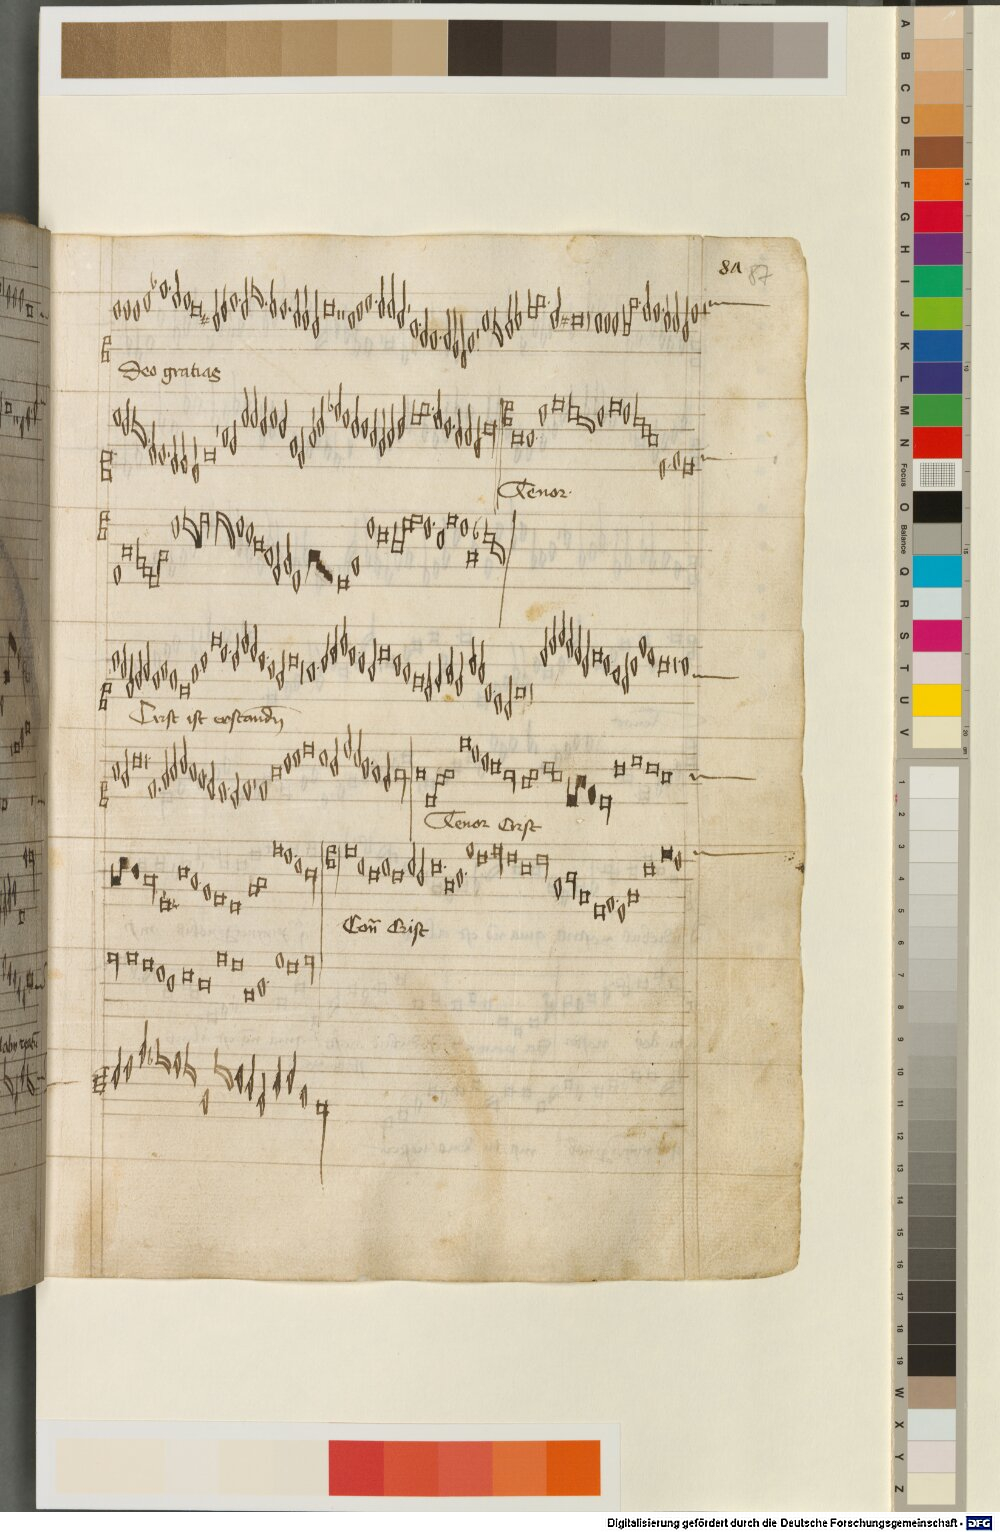 81 87
Deo gratias
Tenor
Crist ist erstanden
Tenor Crist
Con̄ Crist
A
B
C
D
E
F
G
H
I
J
K
L
M
N
Focus
O
Balance
Q
R
S
T
U
V
1
2
3
4
5
6
7
8
9
10
11
12
13
14
15
16
17
18
19
W
X
Y
Z
Digitalisierung gefördert durch die Deutsche Forschungsgemeinschaft - DFG